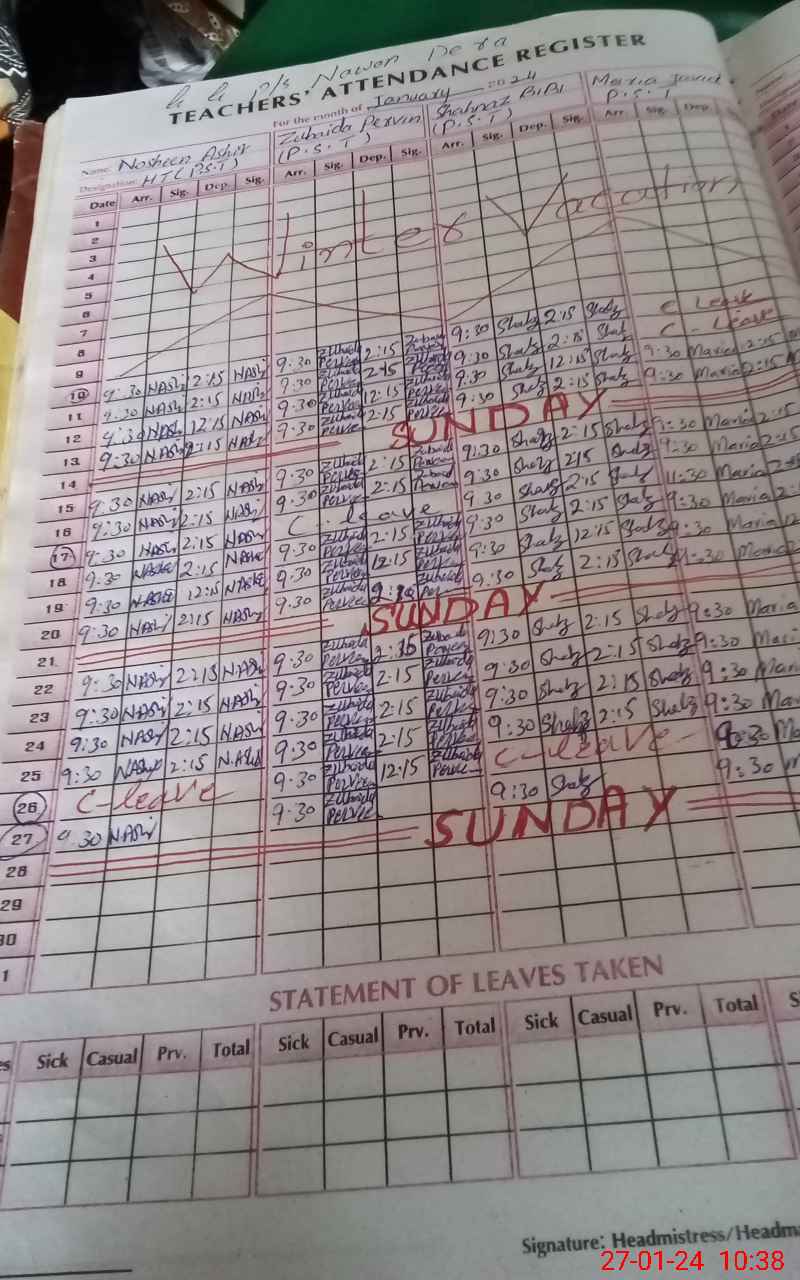 G. G. P/S Nawon Dera
TEACHERS' ATTENDANCE REGISTER
For the month of January 2024
Name: Nosheen Ashir Zubaida Pervin Shahnaz BIBI Maria Javid
Designation: HT (P.S.T) (P.S.T) (P.S.T) P.S.T
Date Arr. Sig. Dep. Sig. Arr. Sig. Dep. Sig. Arr. Sig. Dep. Sig. Arr. Sig. Dep.
1
2
3
4
5
6
Winter Vacation
7
8
9
C Leave
C - Leave
10 9:30 NASh 2:15 NASh 9:30 Zubaida Pervee 2:15 Zubaida 9:30 Shahz 2:15 Shahz
11 9:30 NASh 2:15 NASh 9:30 Zubaida Pervee 2:15 9:30 Shahz 2:15 Shahz
12 9:30 NASh 12:15 NASh 9:30 Zubaida Pervee 12:15 Pervee 9:30 Shahz 12:15 Shahz 9:30 Maria 2:15
13 9:30 NASh 2:15 NASh 9:30 Zubaida Pervee 2:15 Pervee 9:30 Shahz 2:15 Shahz 9:30 Maria 2:15
14 SUNDAY
15 9:30 NASh 2:15 NASh 9:30 Zubaida 2:15 Zubaida 9:30 Shahz 2:15 Shahz 9:30 Maria 2:15
16 9:30 NASh 2:15 NASh 9:30 Zubaida Pervee 2:15 Zubaida 9:30 Shahz 2:15 Shahz 9:30 Maria 2:15
17 9:30 NASh 2:15 NASh C. leave 9:30 Shahz 2:15 Shahz 11:30 Maria 2:15
18 9:30 2:15 9:30 Zubaida Pervee 2:15 Zubaida Pervee 9:30 Shahz 2:15 Shahz 9:30 Maria 2:15
19 9:30 12:15 9:30 Zubaida Pervee 12:15 Zubaida Pervee 9:30 Shahz 12:15 Shahz 9:30 Maria 12
20 9:30 NASh 2:15 NASh 9:30 Zubaida Pervee Zubaida 9:30 Shahz 2:15 Shahz 9:30 Maria
21 SUNDAY
22 9:30 NASh 2:15 NASh 9:30 Zubaida Pervee 2:15 Zubaida Pervee 9:30 Shahz 2:15 Shahz 9:30 Maria
23 9:30 NASh 2:15 NASh 9:30 Zubaida Pervee 2:15 Zubaida Pervee 9:30 Shahz 2:15 Shahz 9:30 Mari
24 9:30 NASh 2:15 NASh 9:30 Zubaida Pervee 2:15 Zubaida Pervee 9:30 Shahz 2:15 Shahz 9:30 Mari
25 9:30 NASh 2:15 NASh 9:30 Zubaida Pervee 2:15 Zubaida Pervee 9:30 Shahz 2:15 Shahz 9:30 Mar
26 C-leave 9:30 Zubaida Pervee 12:15 Zubaida Pervee C-leave 9:30 Ma
27 9:30 NASh 9:30 Zubaida Pervee 9:30 Shahz 9:30 M
28 SUNDAY
29
30
1
STATEMENT OF LEAVES TAKEN
es Sick Casual Prv. Total Sick Casual Prv. Total Sick Casual Prv. Total S
Signature: Headmistress/Headma
27-01-24 10:38